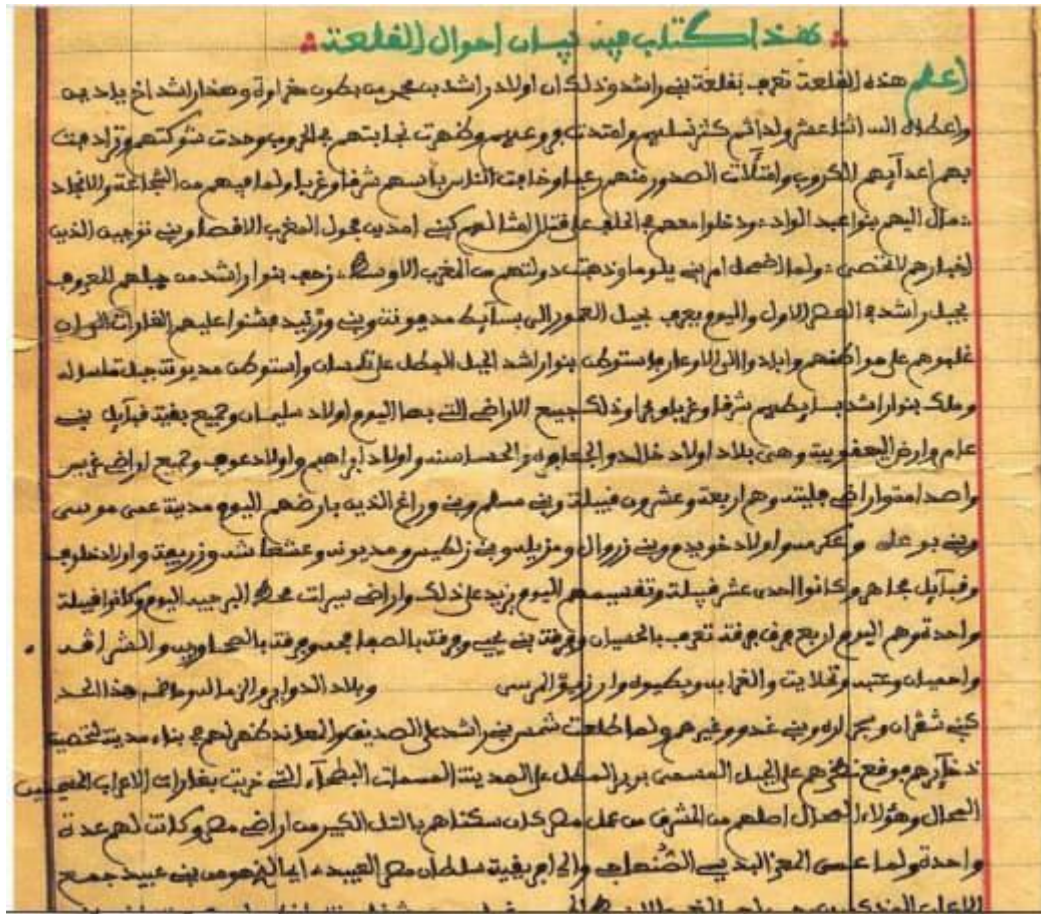 هذا كتاب فيه بيان احوال القلعة
اعلم هذه القلعة تعرف بقلعة بني راشد وذلك ان اولاد راشد بن محمد من بطون مغراوة وهذا راشد اخ يلادين
واعطاه الله اثنا عشر ولدا ثم كثر نسلهم وامتدت فروعهم وظهرت نجابتهم في الحروب وحدت شوكتهم وترادفت
بهم اعدآيهم الكروب وامتلأت الصدور منهم رعبا وخافت الناس بأسهم شرفا وغربا ولما فيهم من الشجاعة والانجاد
مال اليهم بنوا عبد الواد ودخلوا معهم في الحلف على قتال امثالهم كبني مدين فحول المغرب الاقصا وبني توجين الذين
اخبارهم لا تحصى ولما اضمحل امر بني يلوما وذهبت دولتهم من المغرب الاوسط زحف بنوا راشد من جبلهم المعروف
بجبل راشد في العصر الاول واليوم يعرف بجبل العمور الى بسآيط مديونة وبني ورنيد فشنوا عليهم الغارات الى ان
غلبوهم على مواطنهم والى الاوعار واستوطن بنوا راشد الجبل المطل على تلمسان واستوطن مديونة جبل تاسالة
وملك بنوا راشد بسايطهم شرفا وغربا وذلك جميع الاراضي التي بها اليوم اولاد سليمان وجميع بقية قبآيل بني
عامر وارض اليعقوبية وهي بلاد اولاد خالد والجعافرة والحساسنة واولاد ابراهيم واولاد عوف وجميع اراضي غريس
واراضي فليتة وهم اربعة وعشرون قبيلة وبني مسلم وبني وراغ الذين بارضهم اليوم مدينة عمي موسى
وبني بو علي وعكرمة واولاد خويدم وبني زروال ومزيلة وبني زنطيس ومديونة وعشعاشة وزريفة واولاد خلوف
وقبآيل مجاهر وكانوا احدى عشر قبيلة وتقسيمهم اليوم يزيد على ذلك واراضي سيرات محط البرجية اليوم وكانوا قبيلة
واحدة وهم اليوم اربع فرق فرقة تعرف بالحسيان وفرقة بني يحيى وفرقة بالصفافح وفرقة بالصحاورية والشراقة
واحميان وعتبة وتحلايت والغرابة وبطيوة وارزيو المرسى وبلاد الدواير والزمالة هذا الحد
كبني شقران وبني غدو وغيرهم ولما طلعت شمس بني راشد على الصديق والمعاند ظهر لهم في بناء مدينة لتحصين
ذخآيرهم فوقع نظرهم على الجبل المسمى بربر المطل على المدينة المسمات البطحآء التي خربت بغارات الاعراب
المحال وهؤلاء المحال اصلهم من المشرق من عمل مصر كان سكناهم بالتل الكبير من اراضي مصر وكانت لهم عدة
واحدة ولما عصى المعز البديسي الصنهاجي والي افريقية سلطان مصر العبيدي من بني عبيد جمع